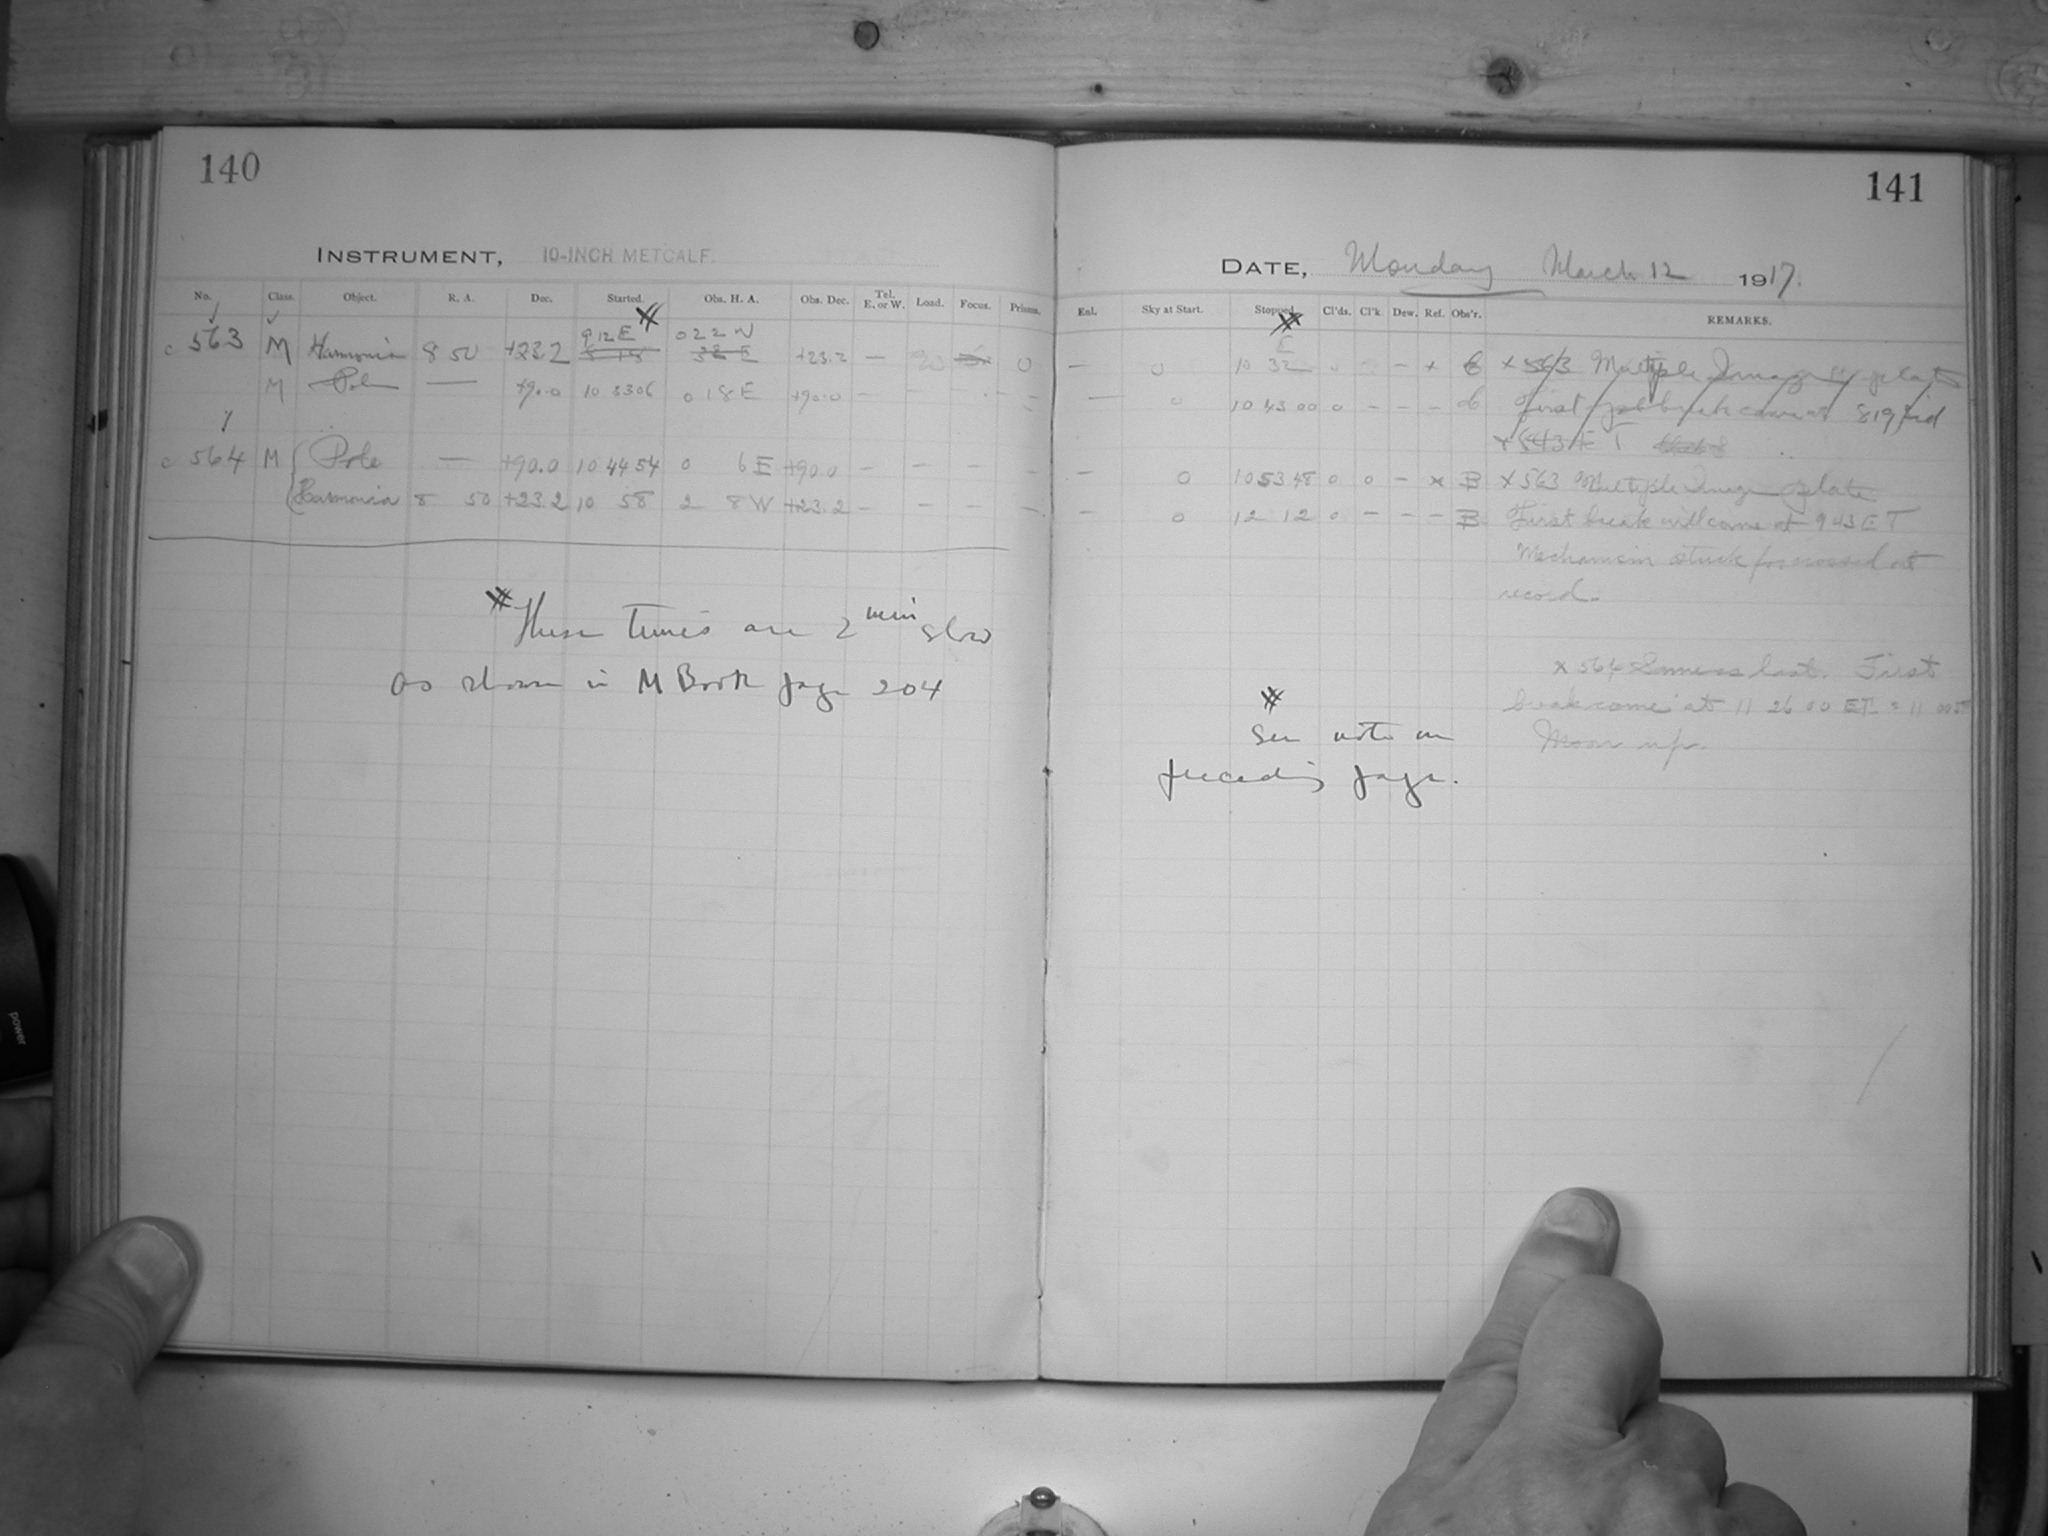 140
INSTRUMENT, 10-INCH METCALF.
No. Class. Object. R. A. Dec. Started. Obs. H. A. Obs. Dec. Tel. E. or W. Load. Focus. Prisms.
c 563 M Harmonia 8 50 +23.2 9 12 E 0 22 W +23.2 — 0
M Pole — +90.0 10 33 06 0 18 E +90.0 —
c 564 M Pole — +90.0 10 44 54 0 6 E +90.0 — — — —
Harmonia 8 50 +23.2 10 58 2 8 W +23.2 — — — —
These times are 2 min slow
as shown in M Book page 204
141
DATE, Monday March 12 1917.
Enl. Sky at Start. Stopped. Cl'ds. Cl'k. Dew. Ref. Obs'r. REMARKS.
— 0 10 32 E 0 — x x 563 Multiple Image plate
— 0 10 43 00 0 — — — First break comes 819
— 0 10 53 48 0 0 — x B x 563 Multiple Image plate
— 0 12 12 0 — — — B First break will come at 9 43 E T
Mechanism stuck
record.
x 564 Same as last. First
break comes at 11 26 00 ET =
Moon up.
See note on
preceding page.
power